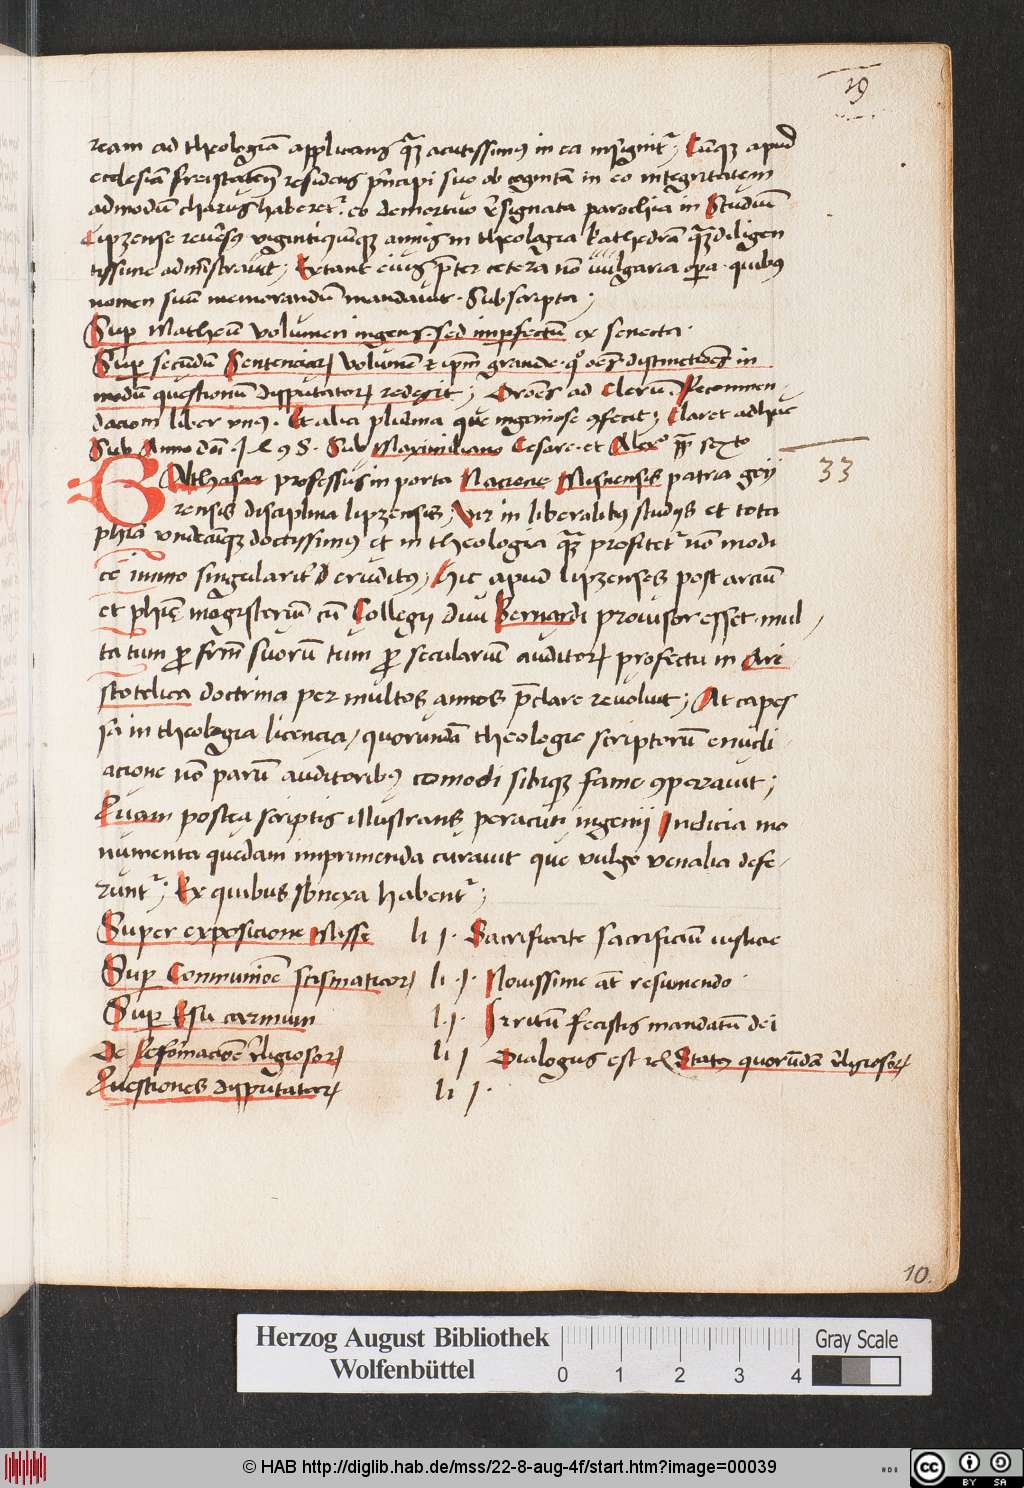 19
ream ad theologiā applicans q̄ȝ acutissimꝰ in ea insignitᷣ; Cūqȝ apud
ecclesiā freistateñ residens p̄ncipi suo ob cognitā in eo integritatem
admodū charus haberetᷣ. eo demortuo resignata parochia in Studiū
Lipzense reuersꝰ vigintiquīqȝ annis in theologia kathedrā q̄ȝ diligen
tissime admīstrauit; Extant eiuꝰ p̄ter cetera nō vulgaria opa. quibꝰ
nomen suū memorandū mandauit. Subscripta;
Sup Matheū volumen ingens. sed imperfectū ex senecta.
Sup secūdū Sentenciaꝝ volumē et ipm̄ grande. qo oēs distinctiōes in
modū questionū disputatoꝝ redegit; Oroēs ad Clerū Recommen
daciom liber vnꝰ. Et alia plurima que ingeniose ꝯfecit; Claret adhuc
Sub Anno dñi. 1498. Sub Maximiliano Cesare. et Alexo pp̄ sexto
33
BAlthasar professus in porta Nacione Misnensis patria geÿ
rensis disciplina lipzensis; Vir in liberalibꝰ studijs et tota
phiā vndecūqȝ doctissimꝰ et in theologia q̄ȝ profitetᷣ nō modi
ce immo singulariter eruditꝰ; Hic apud lipzenses post arciū
et phīe magisteriū cū Collegij diui Bernardi prouisor esset. mul
ta tum ꝓ frm̄ suorū tum ꝓ seculariū auditoꝝ profectu in Ari
stotelica doctrina per multos annos p̄clare reuoluit; At capes
sa in theologia licencia, quorundā theologie scriptorū enucli
acione nō parū auditoribꝰ comodi sibiqȝ fame ꝯperauit;
Quam postea scriptis illustrans peracuti ingenij Indicia mo
numenta quedam imprimenda curauit que vulgo venalia defe
runtᷣ; Ex quibus sbnexa habentᷣ;
Super exposicione Misse li 1. Sacrificate sacrificiū iusticie
Sup Communiōe scismaticoꝝ li. 1. Nouissime at resumendo.
Sup Esu carnium l. 1. Irritū fecistis mandatū dei
De Reformaciōe religiosoꝝ li 1 Dialogus est Statꝰ quorūdā religiosoꝝ
Questiones disputatoꝝ li 1.
10.
Herzog August Bibliothek
Wolfenbüttel
0 1 2 3 4
Gray Scale
© HAB http://diglib.hab.de/mss/22-8-aug-4f/start.htm?image=00039
cc BY SA